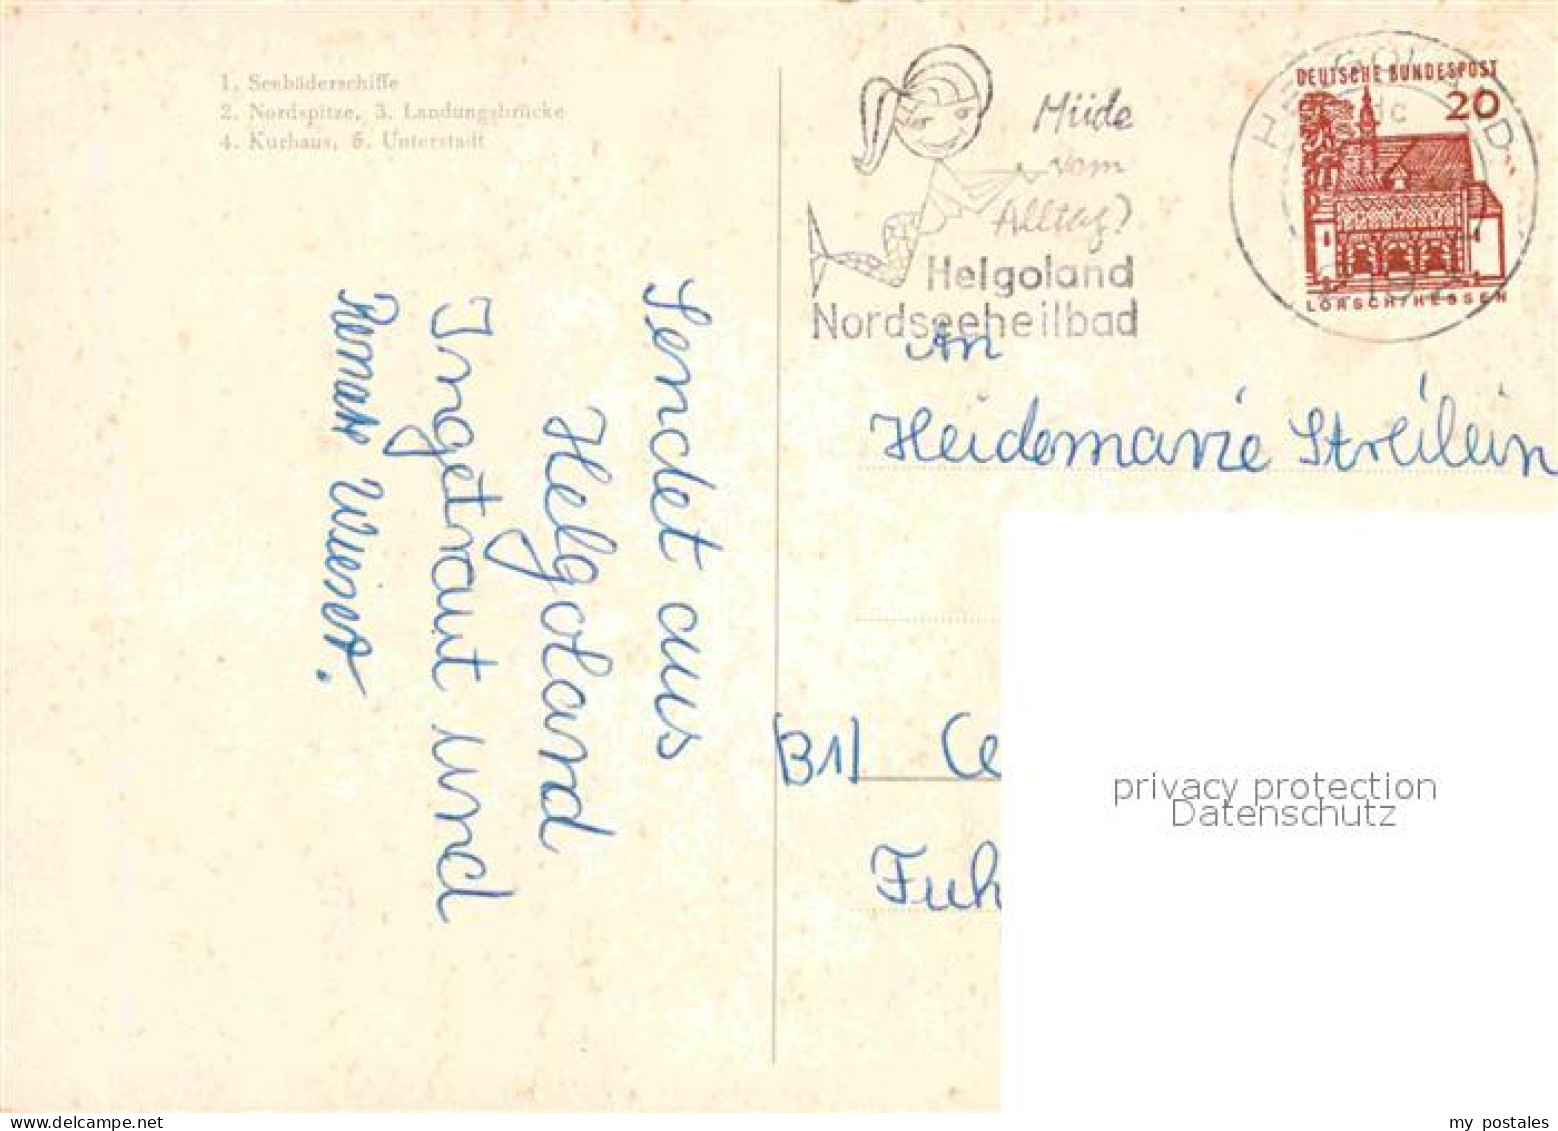 1. Seebäderschiffe
2. Nordspitze, 3. Landungsbrücke
4. Kurhaus, 5. Unterstadt
Sendet aus
Helgoland
Ingetraut und
Renate Wieser.
Müde
vom
Alltag?
Helgoland
Nordseeheilbad
HELGOLAND
DEUTSCHE BUNDESPOST
20
LORSCH/HESSEN
An
Heidemarie Streilein
(B1) Ce
Fuh
privacy protection
Datenschutz
my postales